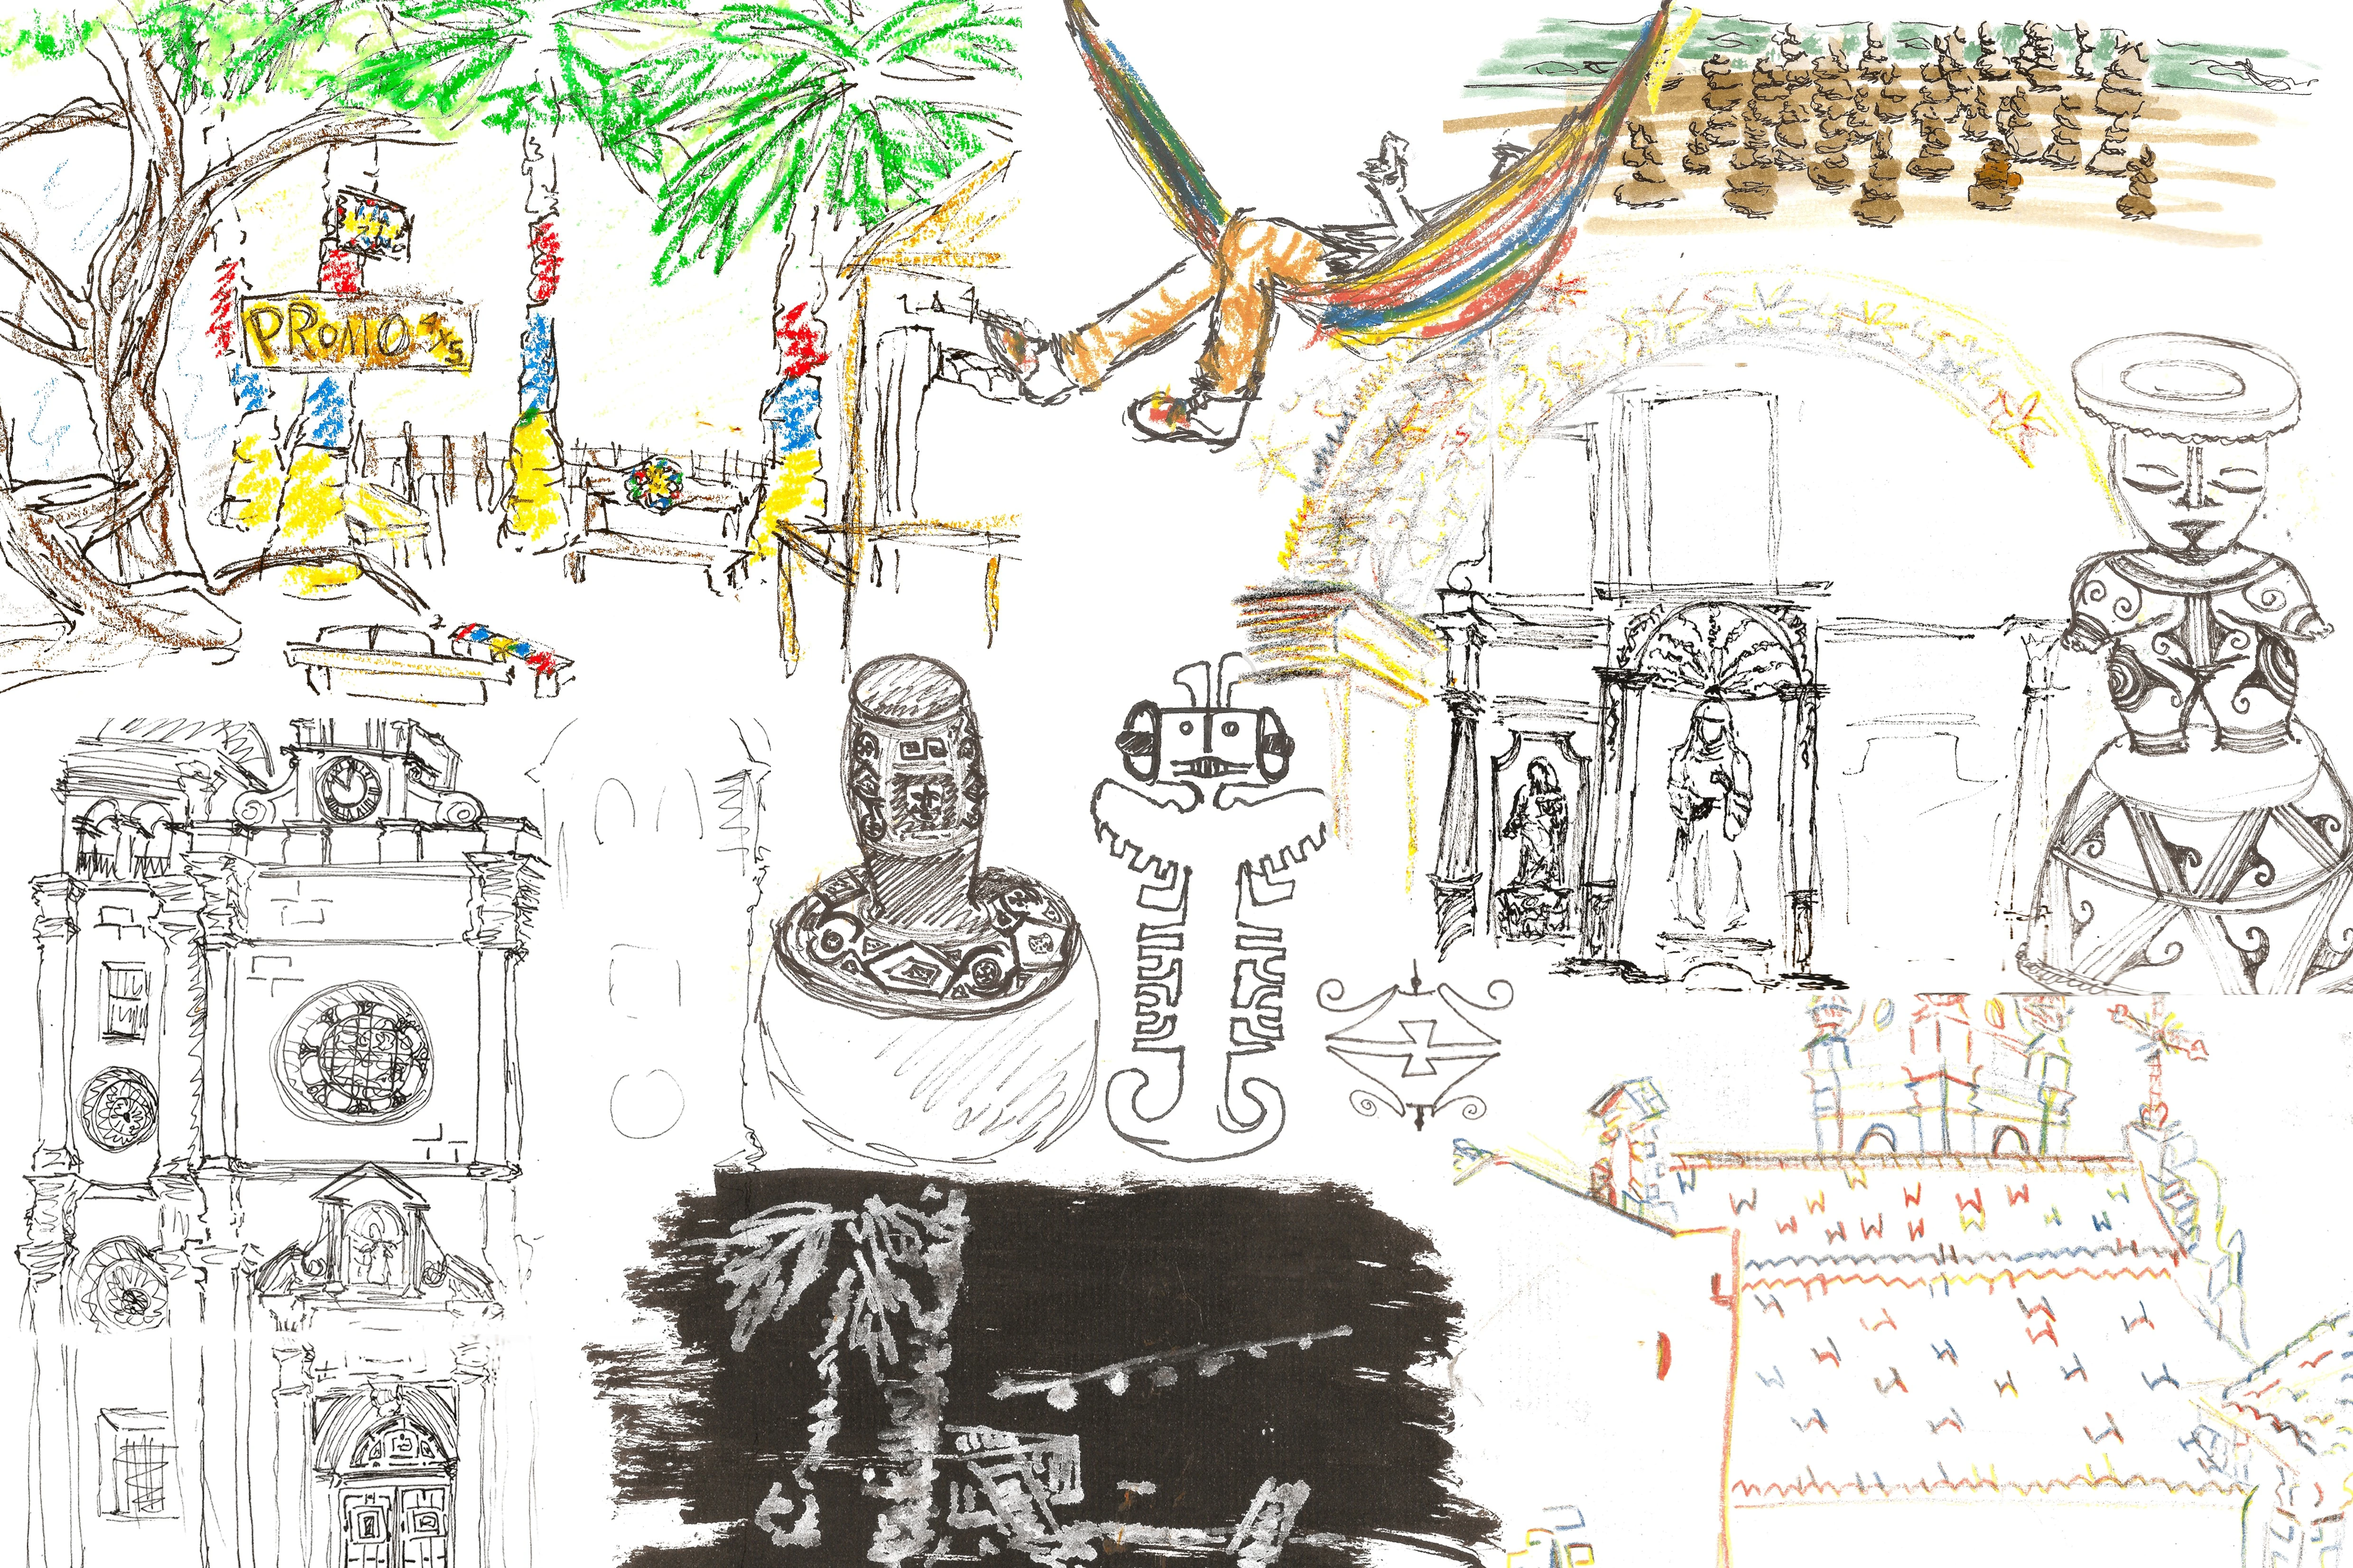 PROMO
4x5